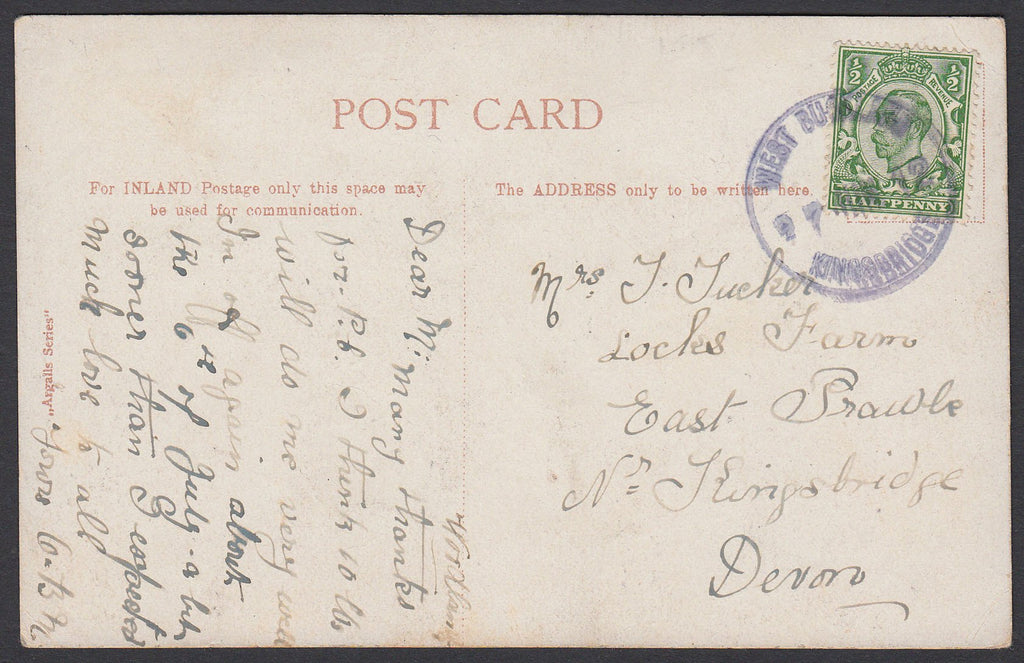 POST CARD
For INLAND Postage only this space may
be used for communication.
The ADDRESS only to be written here.
½ ½
POSTAGE REVENUE
HALFPENNY
WEST
KINGSBRIDGE
Mrs. J. Tucker
Locks Farm
East Prawle
Nr Kingsbridge
Devon
Dear M. Many thanks
for P.C. I think 10 lbs
will do me very well
Im off again about
the 6 of July - a bit
sooner than I expected
Much love to all
Yours
„Argalls Series"